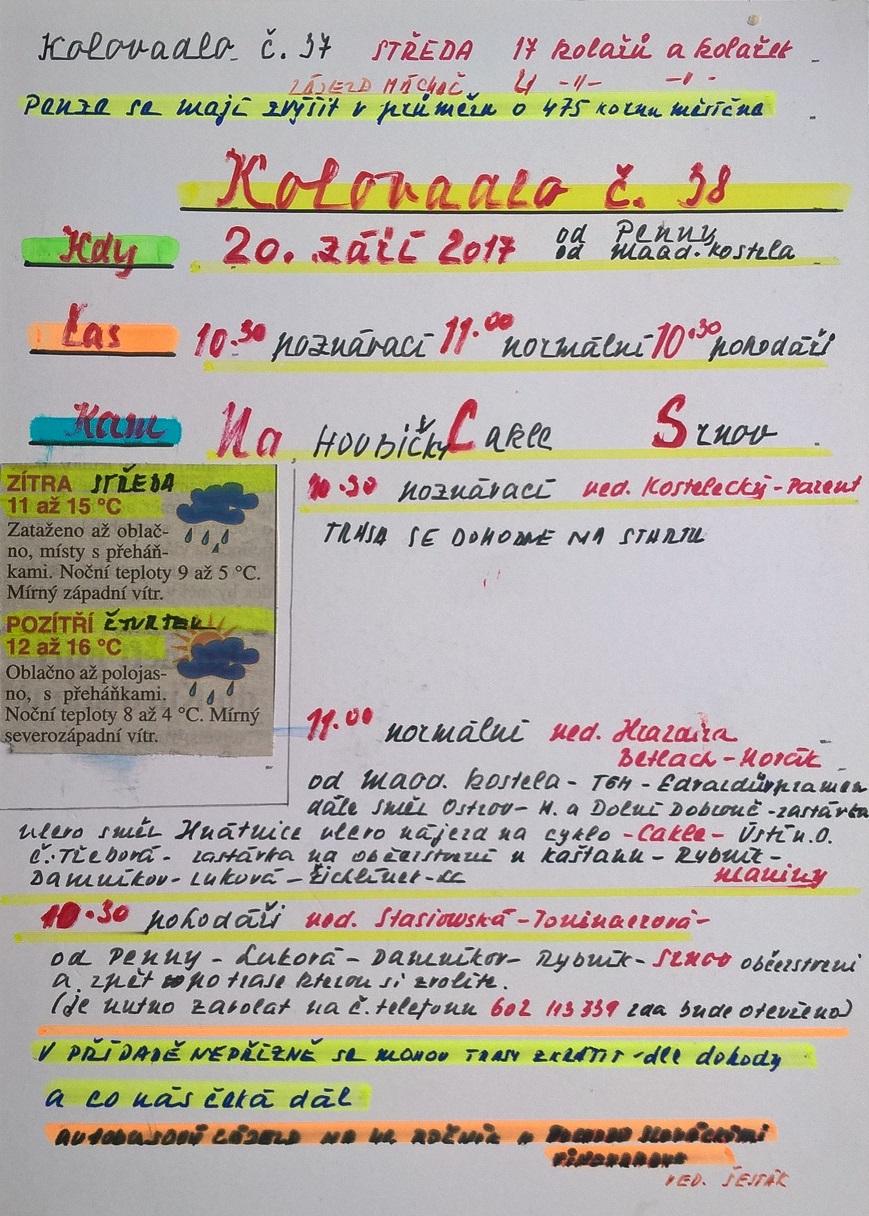 Kolovadlo č. 37 STŘEDA 17 kolařů a kolařek
ZÁJEZD 4 -"- -"-
Penze se mají zvýšit v průměru o 475 korun měsíčně
Kolovadlo č. 38
Kdy 20. září 2017 od Penny
od maad. kostela
Čas 10.30 poznávací 11.00 normální 10.30 pohodáři
Kam Na HOUBIČKY Cakle Srnov
ZÍTRA STŘEDA
11 až 15 °C
Zataženo až oblač-
no, místy s přeháň-
kami. Noční teploty 9 až 5 °C.
Mírný západní vítr.
POZÍTŘÍ ČTVRTEK
12 až 16 °C
Oblačno až polojas-
no, s přeháňkami.
Noční teploty 8 až 4 °C. Mírný
severozápadní vítr.
10.30 poznávací ved. Kostelecký - Parent
TRASA SE DOHODNE NA STARTU
11.00 normální ved.
Betlach - Horčík
od maad. kostela - TGM -
dále směr Ostrov - H. a Dolní Dobrouč - zastávka
vlevo směr Hnátnice vlevo nájezd na cyklo - Cakle - Ústí n.O.
Č. Třebová - zastávka na občerstvení u kaštanu - Rybník -
Damníkov - Luková - Žichlínek - LL
10.30 pohodáři ved. Stasiowská -
od Penny - Luková - Damníkov - Rybník - Srnov občerstvení
a zpět po trase kterou si zvolíte.
(je nutno zavolat na č. telefonu 602 113 339 zda bude otevřeno)
V PŘÍPADĚ NEPŘÍZNĚ se mohou TRASY ZKRÁTIT - dle dohody
a co nás čeká dál
AUTOBUSOVÝ ZÁJEZD NA ROČNÍK
VED. ŠESTÁK